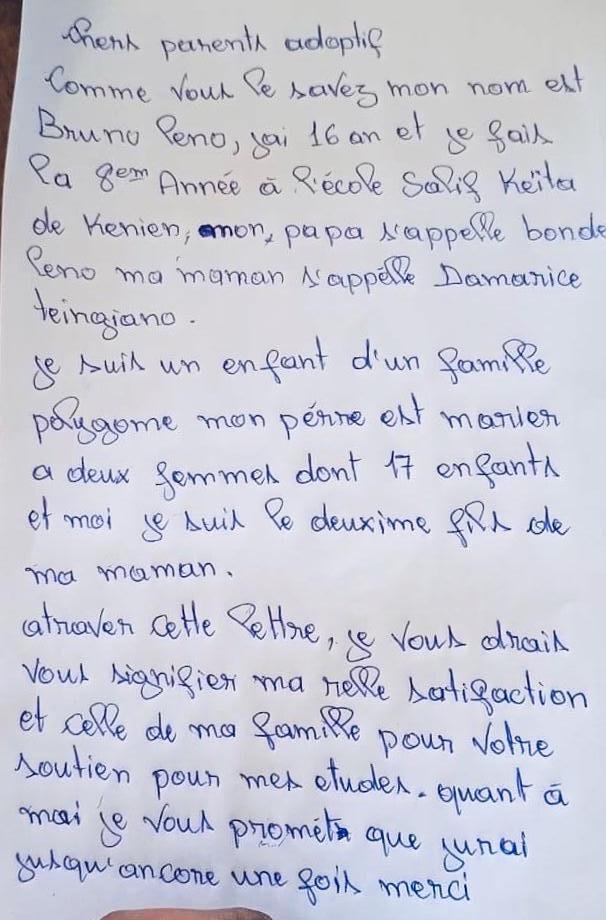 chers parents adoptif
Comme vous le savez mon nom est
Bruno Leno, jai 16 an et je fais
la 8em Année à l'école Salif Keïta
de Kenien, mon, papa s'appelle bonde
Leno ma maman s'appélle Damarice
teingiano.
je suis un enfant d'un famille
polygome mon pérre est marier
a deux femmes dont 17 enfants
et moi je suis le deuxime fils de
ma maman.
atraver cette lettre, je vous drais
vous signifier ma relle satifaction
et celle de ma famille pour votre
soutien pour mes etudes. quant à
moi je vous promets que jurai
jusqu'ancore une fois merci